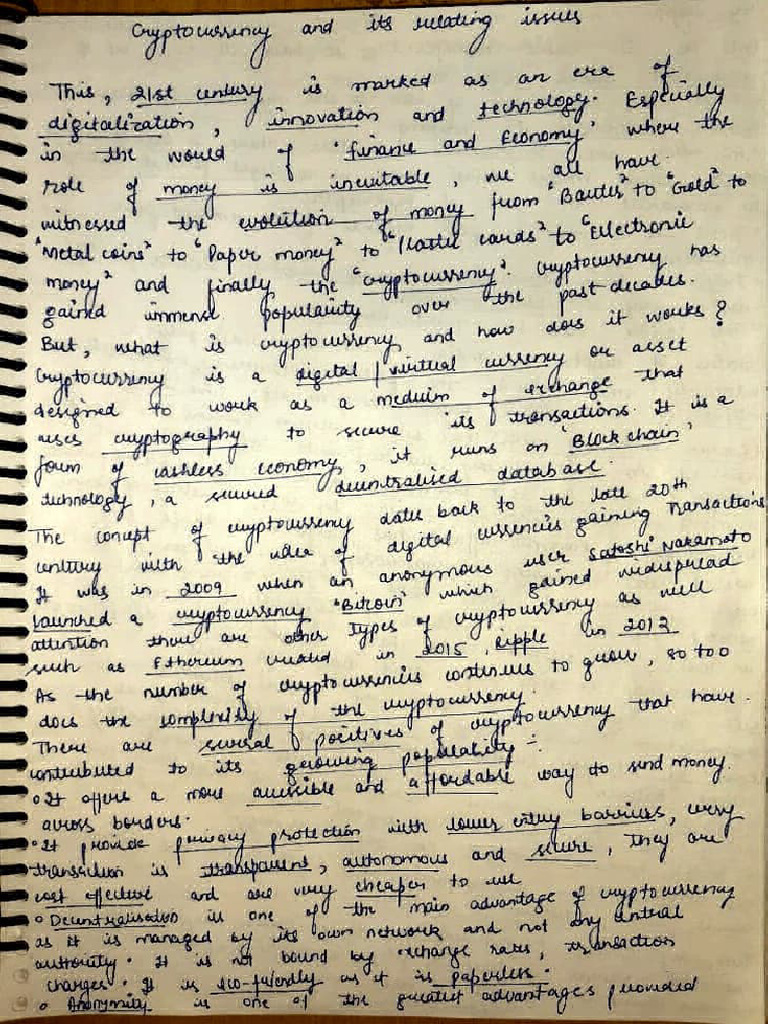 Cryptocurrency and its relating issues
This, 21st century is marked as an era of
digitalization, innovation and technology. Especially
in the would of 'finance and Economy' where the
role of money is inevitable, we all have.
witnessed the evolution of money from "Barter" to "Gold" to
"Metal coins" to "Paper money" to "Plastic cards" to "Electronic
money" and finally the "cryptocurrency". Cryptocurrency has
gained immense popularity over the past decades.
But, what is cryptocurrency and how does it works?
Cryptocurrency is a digital / virtual currency or asset
designed to work as a medium of exchange that
uses cryptography to secure its transactions. It is a
form of cashless economy, it runs on 'Block chain'
technology, a secured decentralised database.
The concept of cryptocurrency dates back to the late 20th
century with the idea of digital currencies gaining Transactions
It was in 2009 when an anonymous user Satoshi Nakamoto
launched a cryptocurrency 'Bitcoin' which gained widespread
attention there are other types of cryptocurrency as well
such as Ethereum created in 2015, Ripple in 2012
As the number of cryptocurrencies continues to grow, so too
does the complexity of the cryptocurrency.
There are several positives of cryptocurrency that have.
contributed to its growing popularity :-
• It offers a more accessible and affordable way to send money.
across borders.
• It provide privacy protection with lower entry barriers, every
transaction is transparent, autonomous and secure, they are
cost effective and are very cheaper to use
• Decentralisation is one of the main advantage of cryptocurrency
as it is managed by its own network and not any central
authority. It is not bound by exchange rates, transaction
charges. It is eco-friendly as it is paperless.
• Anonymity is one of the greatest advantages provided